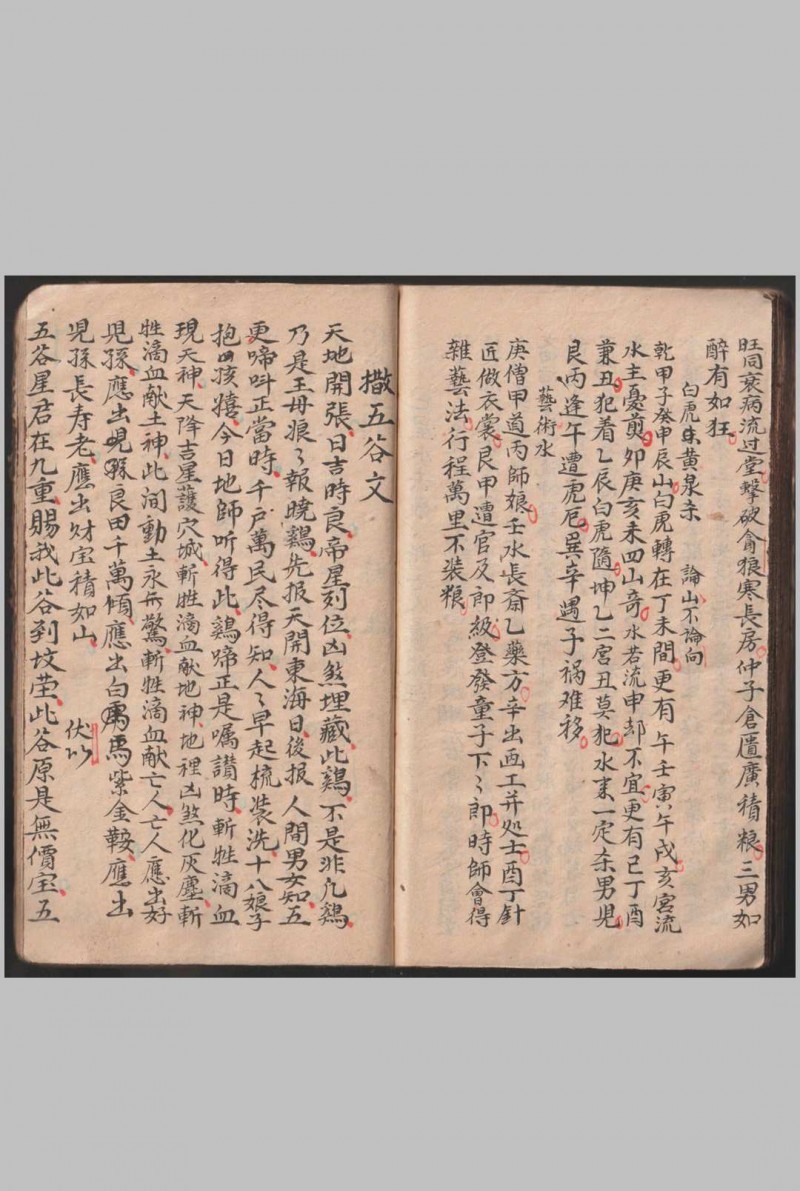 旺同衰病流过堂擊破貪狼寒長房仲子倉匱廣積粮三男如
醉有如狂
白虎黄泉杀 論山不論向
乾甲子癸申辰山白虎轉在丁未間更有午壬寅午戌亥宮流
水主憂煎卯庚亥未四山奇水若流申却不宜更有己丁酉
兼丑犯着乙辰白虎隨坤乙二宮丑莫犯水来一定杀男児
艮丙逢午遭虎厄巽辛遇子祸难移
藝術水
庚僧甲道丙師娘壬水長斎乙藥方辛出画工并処士酉丁針
匠做衣裳艮甲遭官及即級登發童子下〻即時師會得
雜藝法行程萬里不装粮
撒五谷文
天地開張日吉時良帝星列位凶煞埋藏此鷄不是非凡鷄
乃是王母娘〻報曉鷄先报天開東海日後报人間男女知五
更啼叫正當時千戸萬民尽得知人〻早起梳装洗十八娘子
抱孩嬉今日地師听得此鷄啼正是嘱讃時斬牲滴血
現天神天降吉星護穴城斬牲滴血献地神地裡凶煞化灰塵斬
牲滴血献土神此间動土永无驚斬牲滴血献亡人亡人應出好
児孫應出児孫良田千萬傾應出白馬紫金鞍應出
児孫長寿老應出财宝積如山 伏以
五谷星君在九重賜我此谷到坟茔此谷原是無價宝五